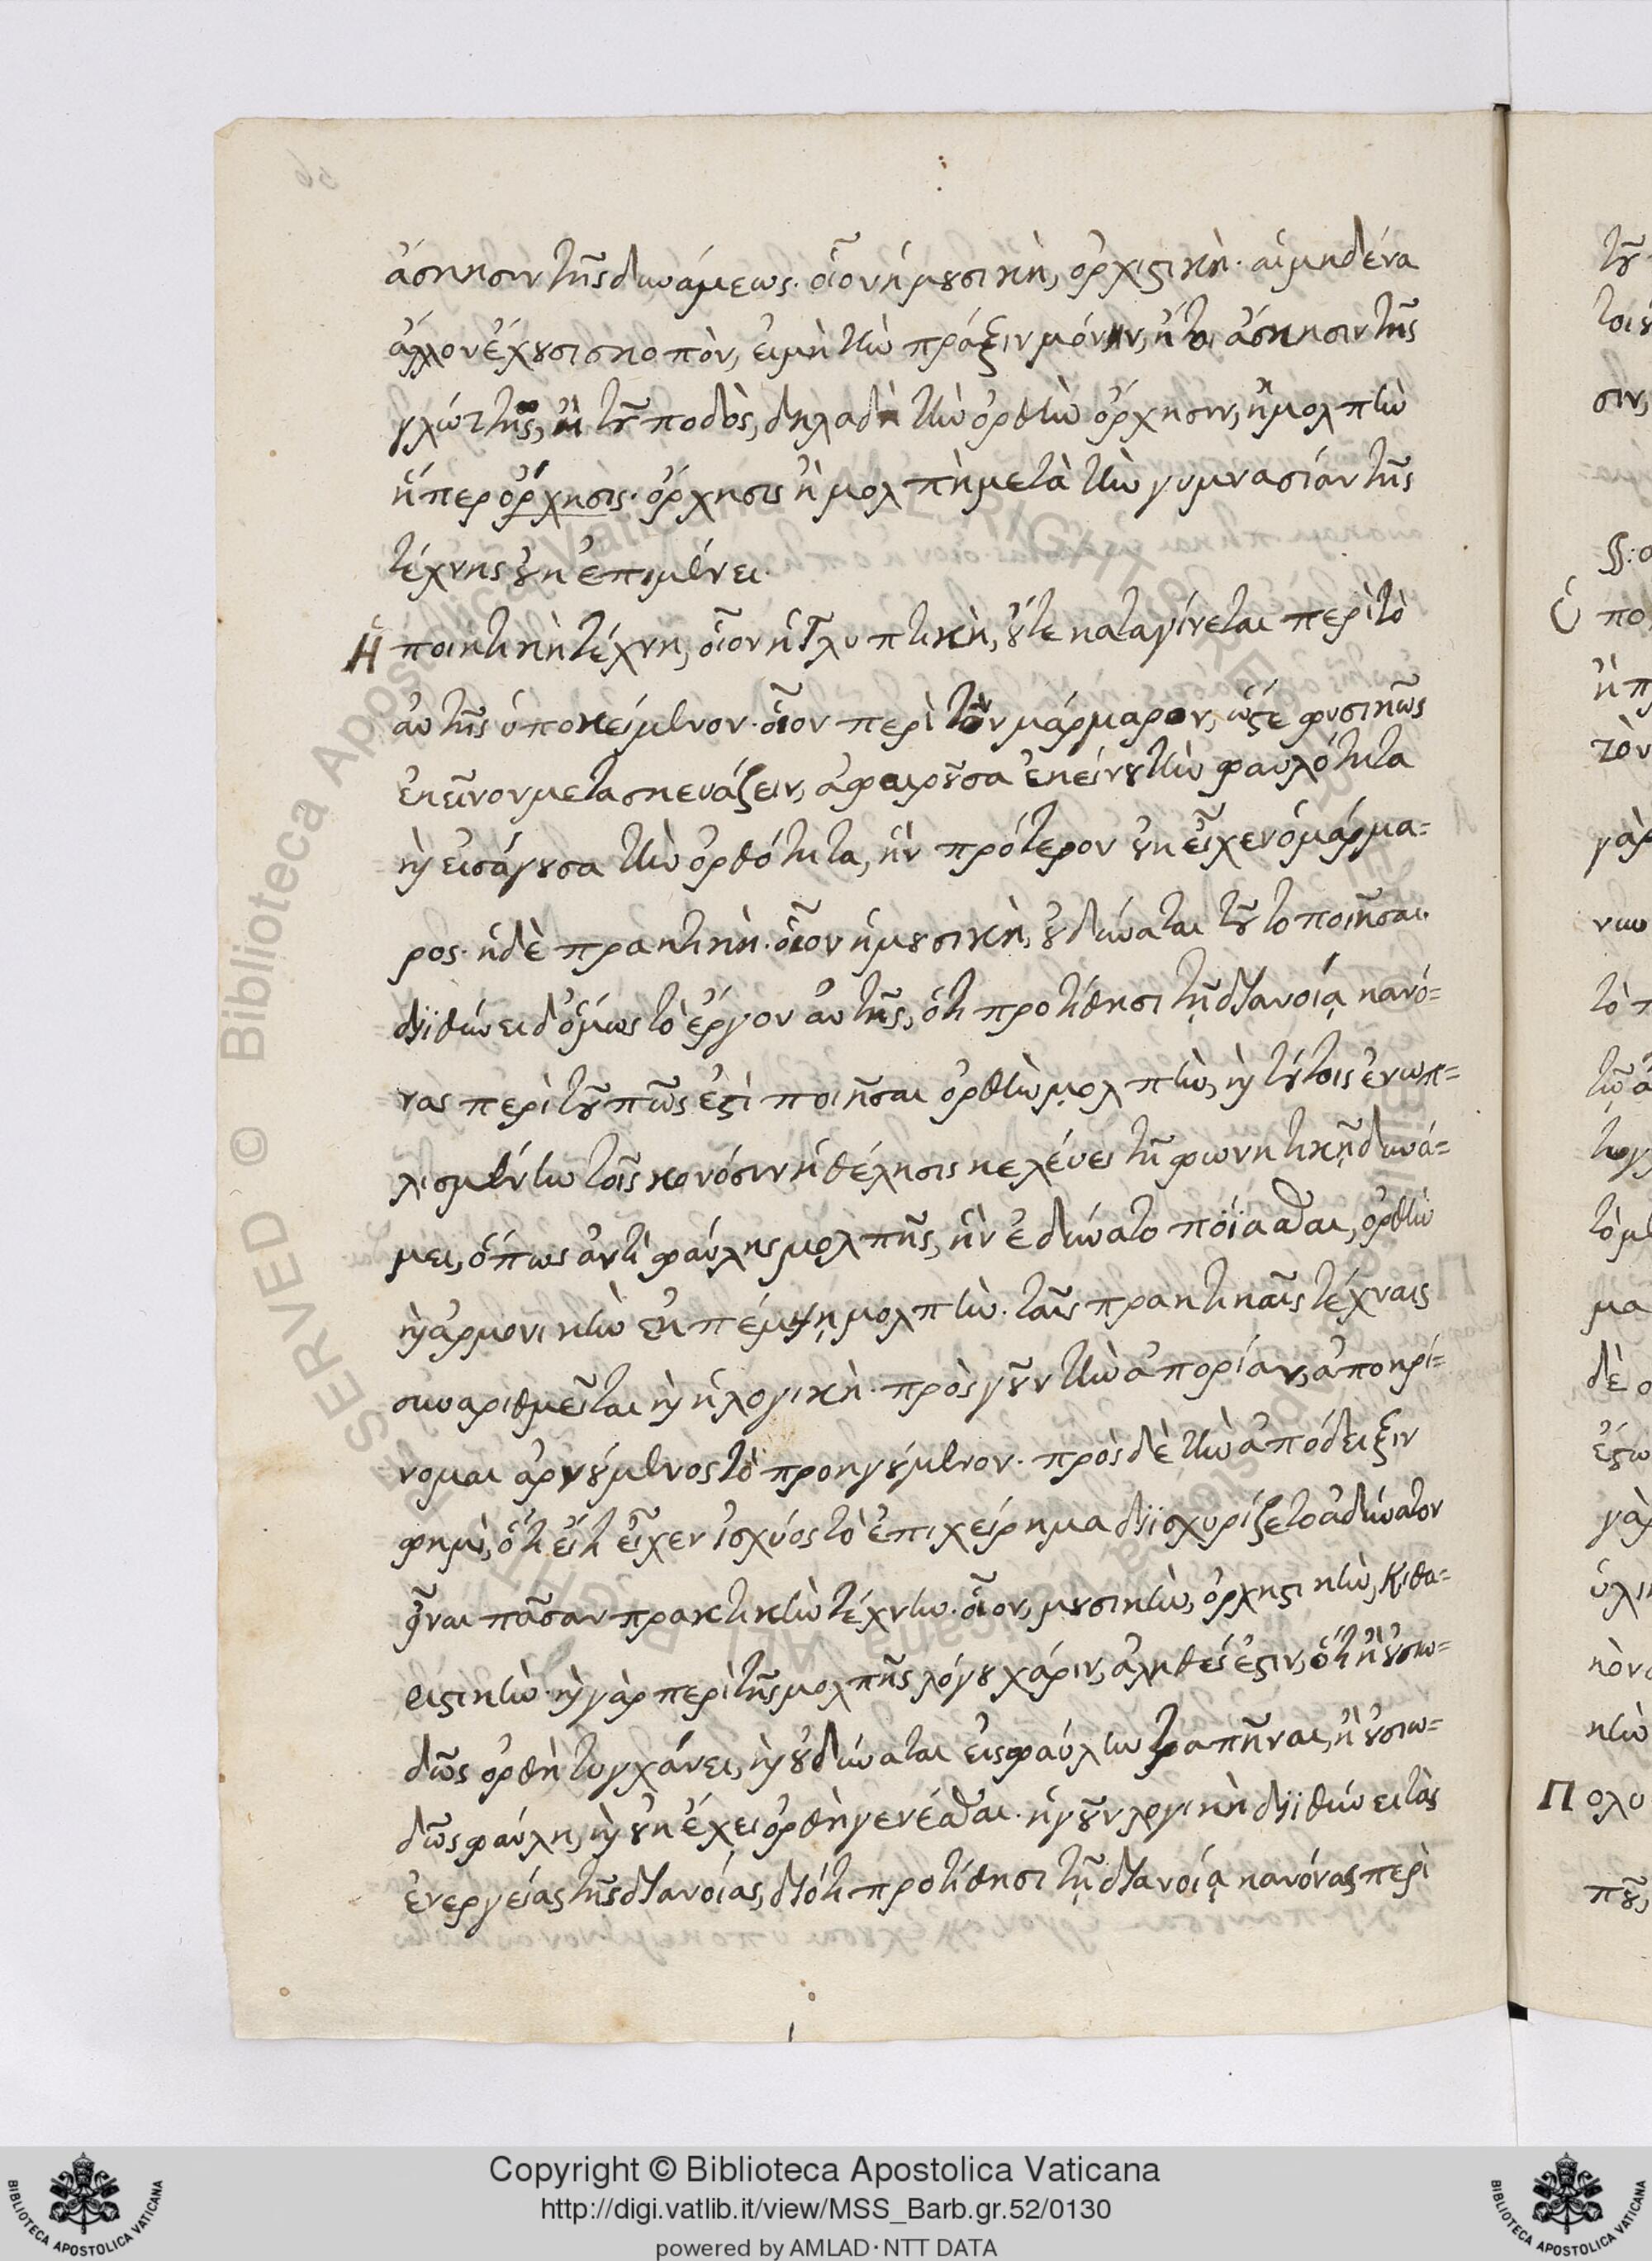 ἄσκησιν τῆς δυνάμεως. οἷον ἡ μουσικὴ, ὀρχιστικὴ. αἱ μηδένα
ἄλλον ἔχουσι σκοπὸν, εἰμὴ τὴν πρᾶξιν μόνην, ἤτοι ἄσκησιν τῆς
γλώττης, ἢ τοῦ ποδὸς, δηλαδὴ τὴν ὀρθὴν ὄρχησιν, ἢ μολπὴν
ἥπερ ὄρχησις. ὄρχησις ἢ μολπὴ μετὰ τὴν γυμνασίαν τῆς
τέχνης οὐκ ἐπιμένει.
Ἡ ποιητικὴ τέχνη, οἷον ἡ Γλυπτικὴ, οὔτε καταγίνεται περὶ τὸ
αὐτῆς ὑποκείμενον. οἷον περὶ τὸν μάρμαρον, ὥστε φυσικῶς
ἐκεῖνον μετασκευάζειν, ἀφαιροῦσα ἐκείνου τὴν φαυλότητα
καὶ εἰσάγουσα τὴν ὀρθότητα, ἣν πρότερον οὐκ εἶχεν ὁ μάρμα=
ρος. ἡ δὲ πρακτικὴ. οἷον ἡ μουσικὴ, οὐ δύναται τοῦτο ποιῆσαι.
διϊθύνει δ' ὅμως τὸ ἔργον αὐτῆς, ὅτι προτίθησι τῇ διανοίᾳ κανό=
νας περὶ τοῦ πῶς ἐστὶ ποιῆσαι ὀρθὴν μολπὴν, καὶ τούτοις ἐνωπ=
λισμένην τοῖς κανόσιν ἡ θέλησις κελεύει τῇ φωνητικῇ δυνά=
μει, ὅπως ἀντὶ φαύλης μολπῆς, ἣν ἐδύνατο ποιΐασθαι, ὀρθὴν
καὶ ἁρμονικὴν ἐκπέμψῃ μολπὴν. ταῖς πρακτικαῖς τέχναις
συναριθμεῖται καὶ ἡ λογικὴ. πρὸς γοῦν τὴν ἀπορίαν, ἀποκρί=
νομαι ἀρνούμενος τὸ προηγούμενον. πρὸς δὲ τὴν ἀπόδειξιν
φημὶ, ὅτι εἴτι εἶχεν ἰσχύος τὸ ἐπιχείρημα διϊσχυρίζετο ἀδύνατον
εἶναι πᾶσαν πρακτικὴν τέχνην. οἷον, μουσικὴν, ὀρχηστικὴν, κιθα=
ριστικὴν. καὶ γὰρ περὶ τῆς μολπῆς λόγου χάριν, ἀληθές ἐστιν, ὅτι ἢ οὐσιω=
δῶς ὀρθὴ τυγχάνει, καὶ οὐ δύναται εἰς φαύλην τραπῆναι, ἢ οὐσιω=
δῶς φαύλη, καὶ οὐκ ἔχει ὀρθὴ γενέσθαι. ἡ γοῦν λογικὴ διϊθύνει τὰς
ἐνεργείας τῆς διανοίας, διότι προτίθησι τῇ διανοίᾳ κανόνας περὶ
Copyright © Biblioteca Apostolica Vaticana
http://digi.vatlib.it/view/MSS_Barb.gr.52/0130
powered by AMLAD·NTT DATA